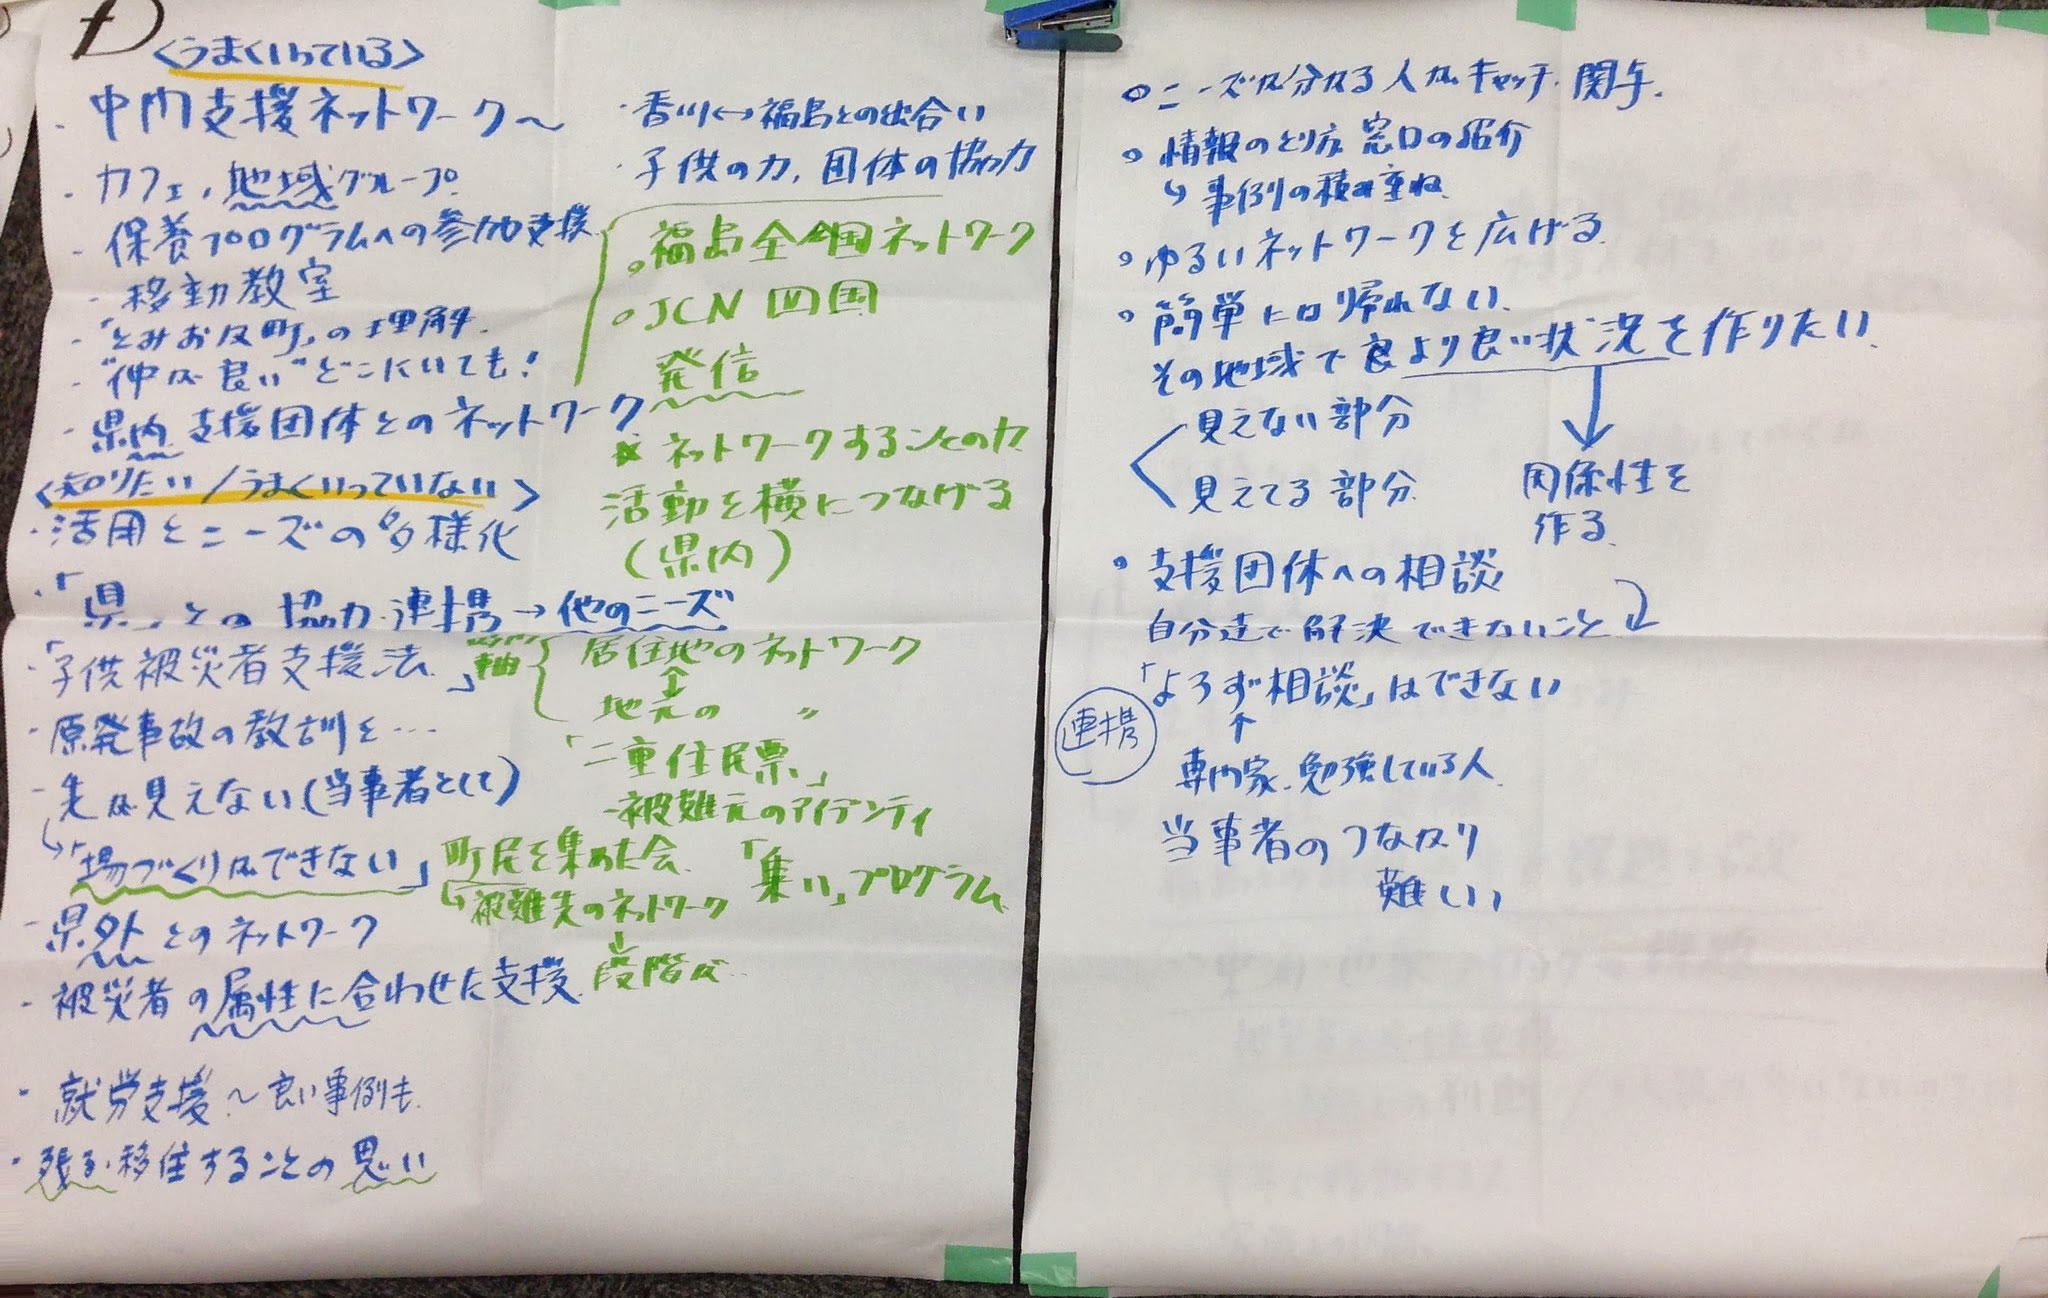 D
<うまくいっている>
・中間支援ネットワーク〜
・カフェ、地域グループ
・保養プログラムへの参加支援
・移動教室
・「とみおか町」の理解
・"仲が良い"どこにいても!
・県内 支援団体とのネットワーク
・香川↔福島との出合い
・子供の力、団体の協力
○福島全国ネットワーク
○JCN 四国
発信
※ネットワークすることの力
活動を横につなげる
(県内)
<知りたい/うまくいっていない>
・活用とニーズの多様化
・「県」との協力・連携→他のニーズ
・「子供被災者支援法」
軸
居住地のネットワーク
⇕
地元の 〃
「二重住民票」
-被難元のアイデンティ
・原発事故の教訓を…
-先が見えない(当事者として)
↳「場づくりができない」
町民を集めた会
↳被難先のネットワーク
↓
段階が…
「集い」プログラム
-県外とのネットワーク
-被災者の属性に合わせた支援
・就労支援〜良い事例も
・残る・移住することの思い
○ニーズが分かる人がキャッチ・関与
○情報のとり方 窓口の紹介
↳事例の積み重ね
○ゆるいネットワークを広げる
○簡単には帰れない
その地域で より良い状況を作りたい
↓
関係性を
作る
見えない部分
見えてる部分
・支援団体への相談
自分達で解決できないこと
「よろず相談」はできない
↑
連携
専門家、勉強している人
当事者のつながり
難しい